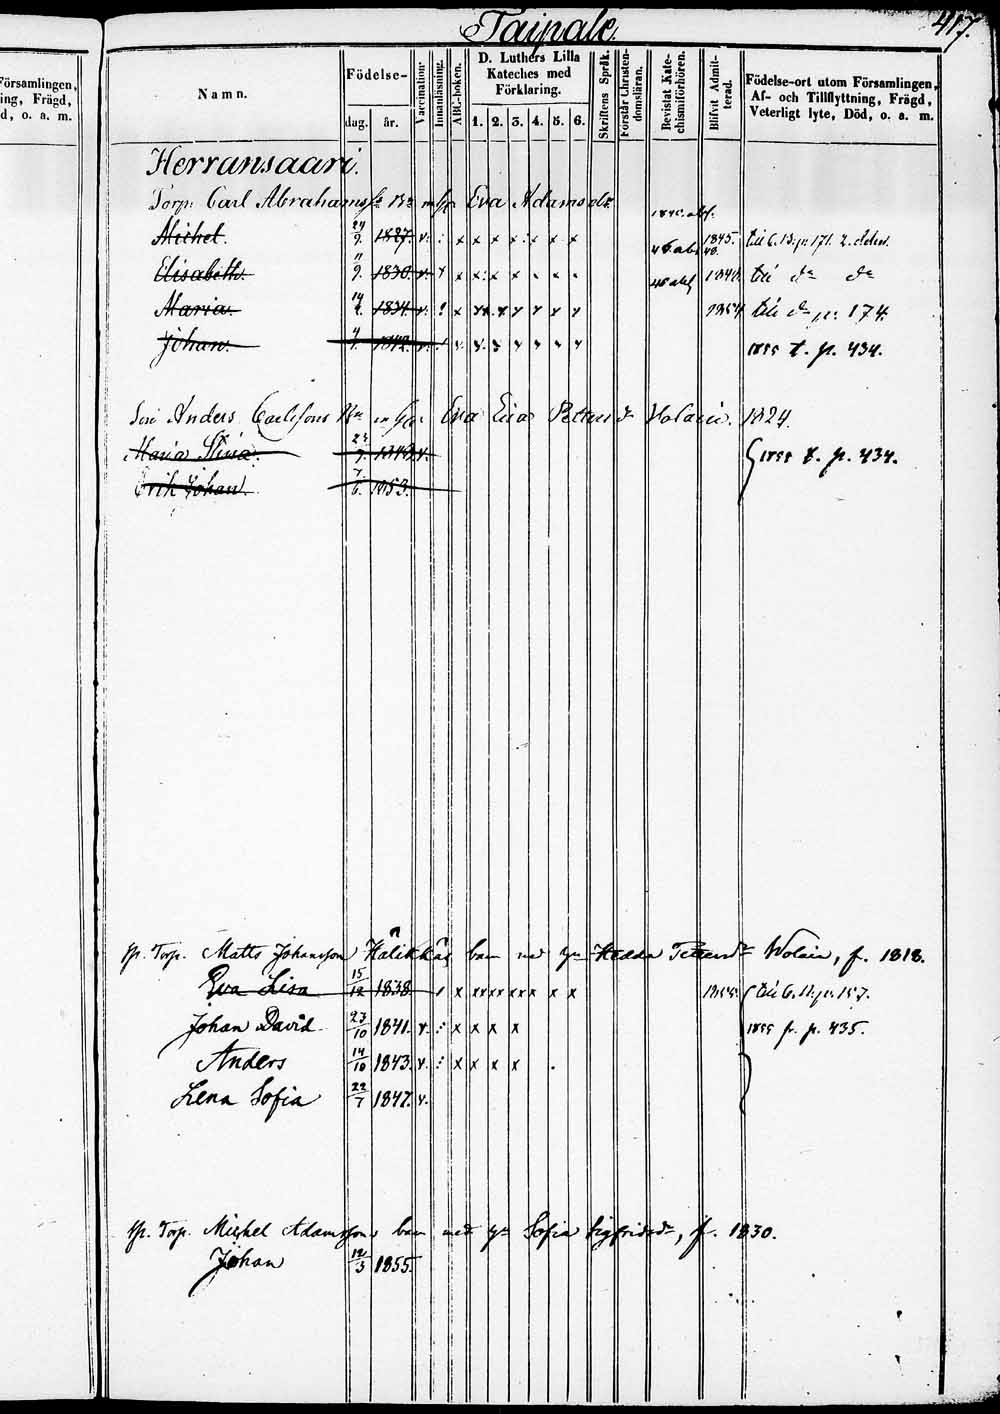 Taipale. 417.
Församlingen,
ing, Frägd,
d, o. a. m.
Namn.
Födelse-
dag. år.
Vaccination.
Innanläsning.
ABC-boken.
D. Luthers Lilla
Kateches med
Förklaring.
1. 2. 3. 4. 5. 6.
Skriftens Språk.
Förstår Christen-
domsläran.
Bevistat Kate-
chismiförhören.
Blifvit Admit-
terad.
Födelse-ort utom Församlingen,
Af- och Tillflyttning, Frägd,
Veterligt lyte, Död, o. a. m.
Herransaari.
Torp: Carl Abrahamss Bn m hu Eva Adamsdr.
Michel. 24/9. 1827. v. : x x x x x x x 1845. 171.
Elisabeth. 11/9. 1830. v. x x x x 1848. till do do
Maria. 14/2. 1834. v. x 1854 till do p. 174.
Johan. 1842. v. 1855 t. p. 434.
Son Anders Carlssons Bn m hu Eva Lisa Petterdr Wolain. 1824.
Maria Stina. 23/9. 1849. v. 1855 t. p. 434.
Erik Johan. 7/6. 1853.
Torp. Matts Johansson Hälikkäs barn med hu Hedda Petterdr Wolain, f. 1818.
Eva Lisa 15/12 1838 x x x x x x x x x 1855. till p. 157.
Johan David 23/10 1841. v. : x x x x 1855 fr. p. 435.
Anders 14/10 1843. v. : x x x x
Lena Sofia 22/7 1847. v.
Torp. Michel Adamssons barn med hu Sofia Sigfridsdr, f. 1830.
Johan 12/3 1855.